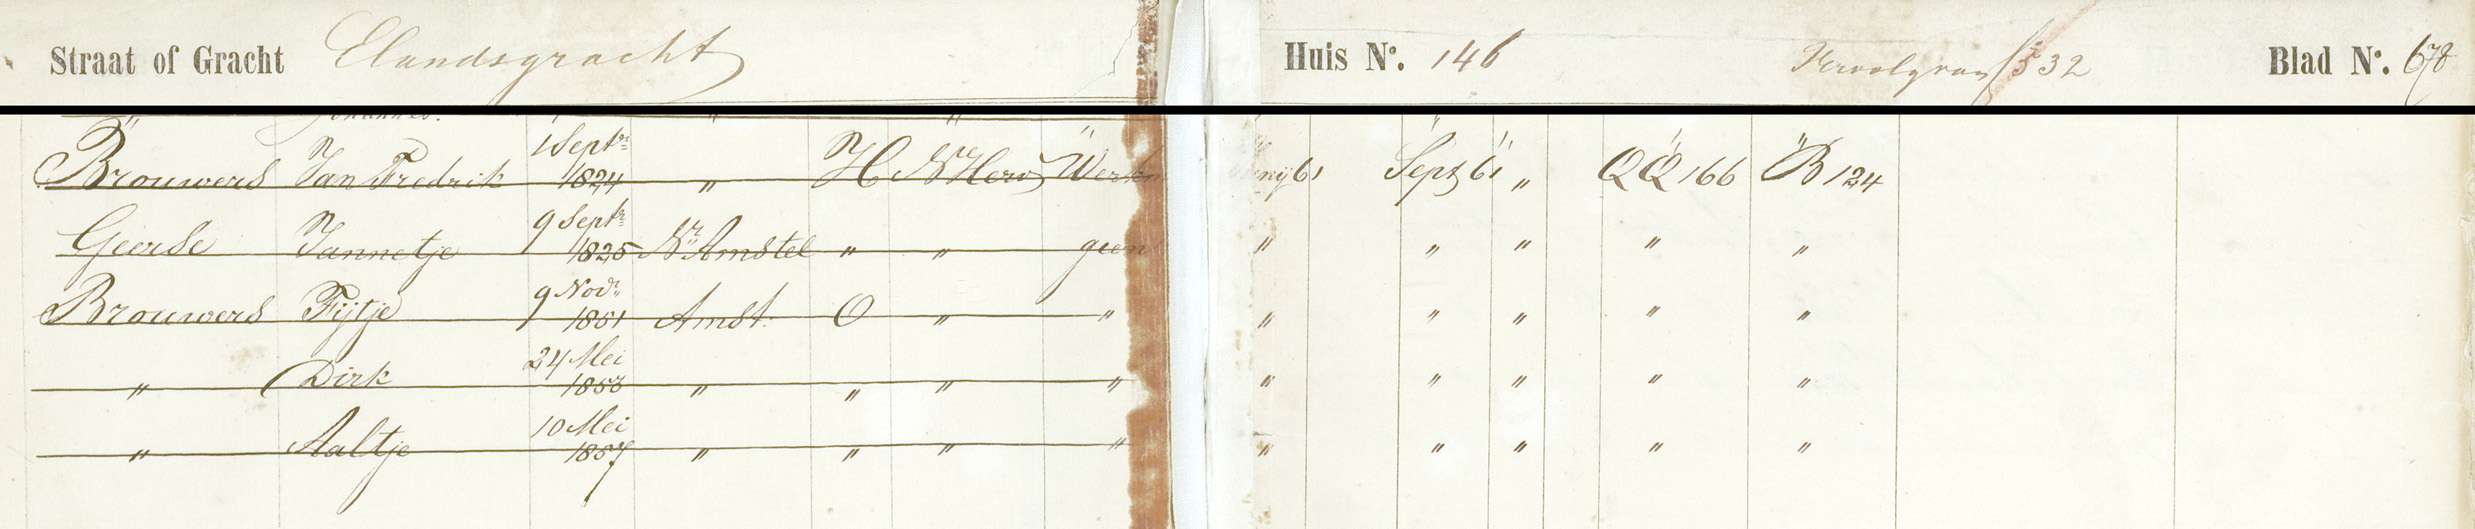 Straat of Gracht Elandsgracht Huis No. 146 532 Blad No. 678
Johannes. " "
Brouwers Jan Fredrik 1 Septr 1824 " H N Herv Werkm 61 Sept 61 " QQ 166 B 124
Geerse Jannetje 9 Septr 1825 Nr Amstel " " geen " " " " "
Brouwers Fijtje 9 Novr 1851 Amst. O " " " " " " "
" Dirk 24 Mei 1853 " " " " " " " " "
" Aaltje 10 Mei 1857 " " " " " " " " "